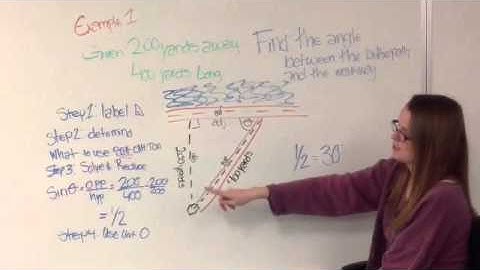 Example 1
Given 200 yards away
400 yards long
Find the angle
between the bikepath
and the
Step 1 label Δ
Step 2 determine
What to use SOH CAH TOA
Step 3 Solve & Reduce
Sinθ = opp/hyp = 200/400 =
= 1/2
Step 4. Use Unit O
adj
200 yards
400 yards
1/2 = 30°